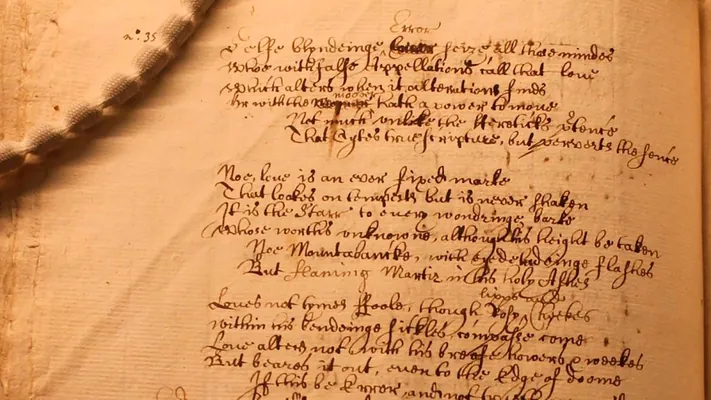 n.º 35
Error
Selfe blyndeinge seize all those mindes
Whoe with false Appellations call that love
Which alters when it alterations finds
moover
Or with the hath a power to moove
Not much unlike the Hereticks p'tence
That Cytes true scripture, but perverts the sence
Noe, love is an ever fixed marke
That lookes on tempests but is never shaken
It is the Starr to every wondringe barke
Whose worth's unknowne, although his height be taken
Noe Mountabancke, with eye deludeinge flashes
But flameing Martir in his holy Ashes
lipps and
Loves not tymes ffoole, though Rosy Cheekes
within his bendeinge sickles compasse come
Love alters not with his breife howers & weekes
But beares it out, even to the Edge of doome
If this be Error, and not